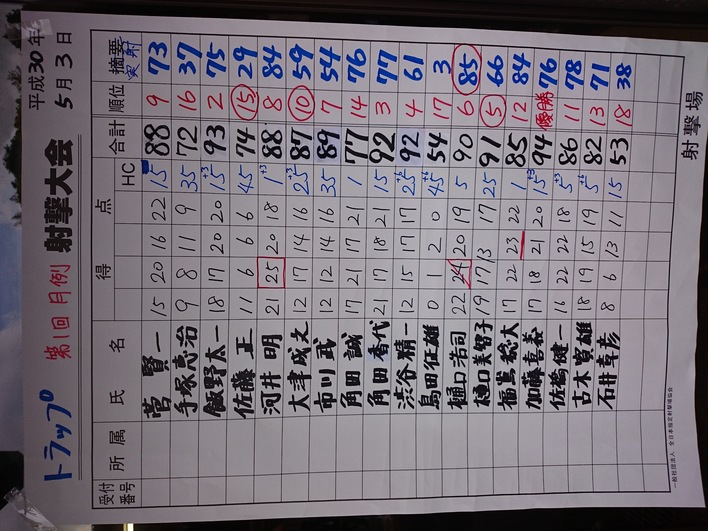 トラップ 第1回 月例 射撃大会 平成30年 5月3日
受付番号 所属 氏名 得点 HC 合計 順位 摘要 実射
菅 賢一 15 20 16 22 15 88 9 73
手塚 恵治 9 8 11 9 35 72 16 37
飯野 太一 18 17 20 20 15 +3 93 2 75
佐藤 正 11 6 6 6 45 74 15 29
河井 明 21 25 20 18 1 +3 88 8 84
大津 成之 12 17 14 16 25 +3 87 10 59
市川 武 12 12 14 16 35 89 7 54
角田 誠 17 21 17 21 1 77 14 76
角田 香代 21 17 18 21 15 92 3 77
渋谷 精一 12 15 17 17 25 92 4 61
島田 征雄 0 1 2 0 45 54 17 3
樋口 浩司 22 24 20 19 5 90 6 85
樋口 美智子 19 17 13 17 25 91 5 66
福嶌 稔大 17 22 23 22 1 85 12 84
加藤 喜義 17 18 21 20 15 +3 94 優勝 76
佐橋 健一 16 22 22 18 5 +3 86 11 78
古木 實雄 18 19 15 19 5 82 13 71
石井 幸彦 8 6 13 11 15 53 18 38
射撃場
一般社団法人 全日本指定射撃場協会